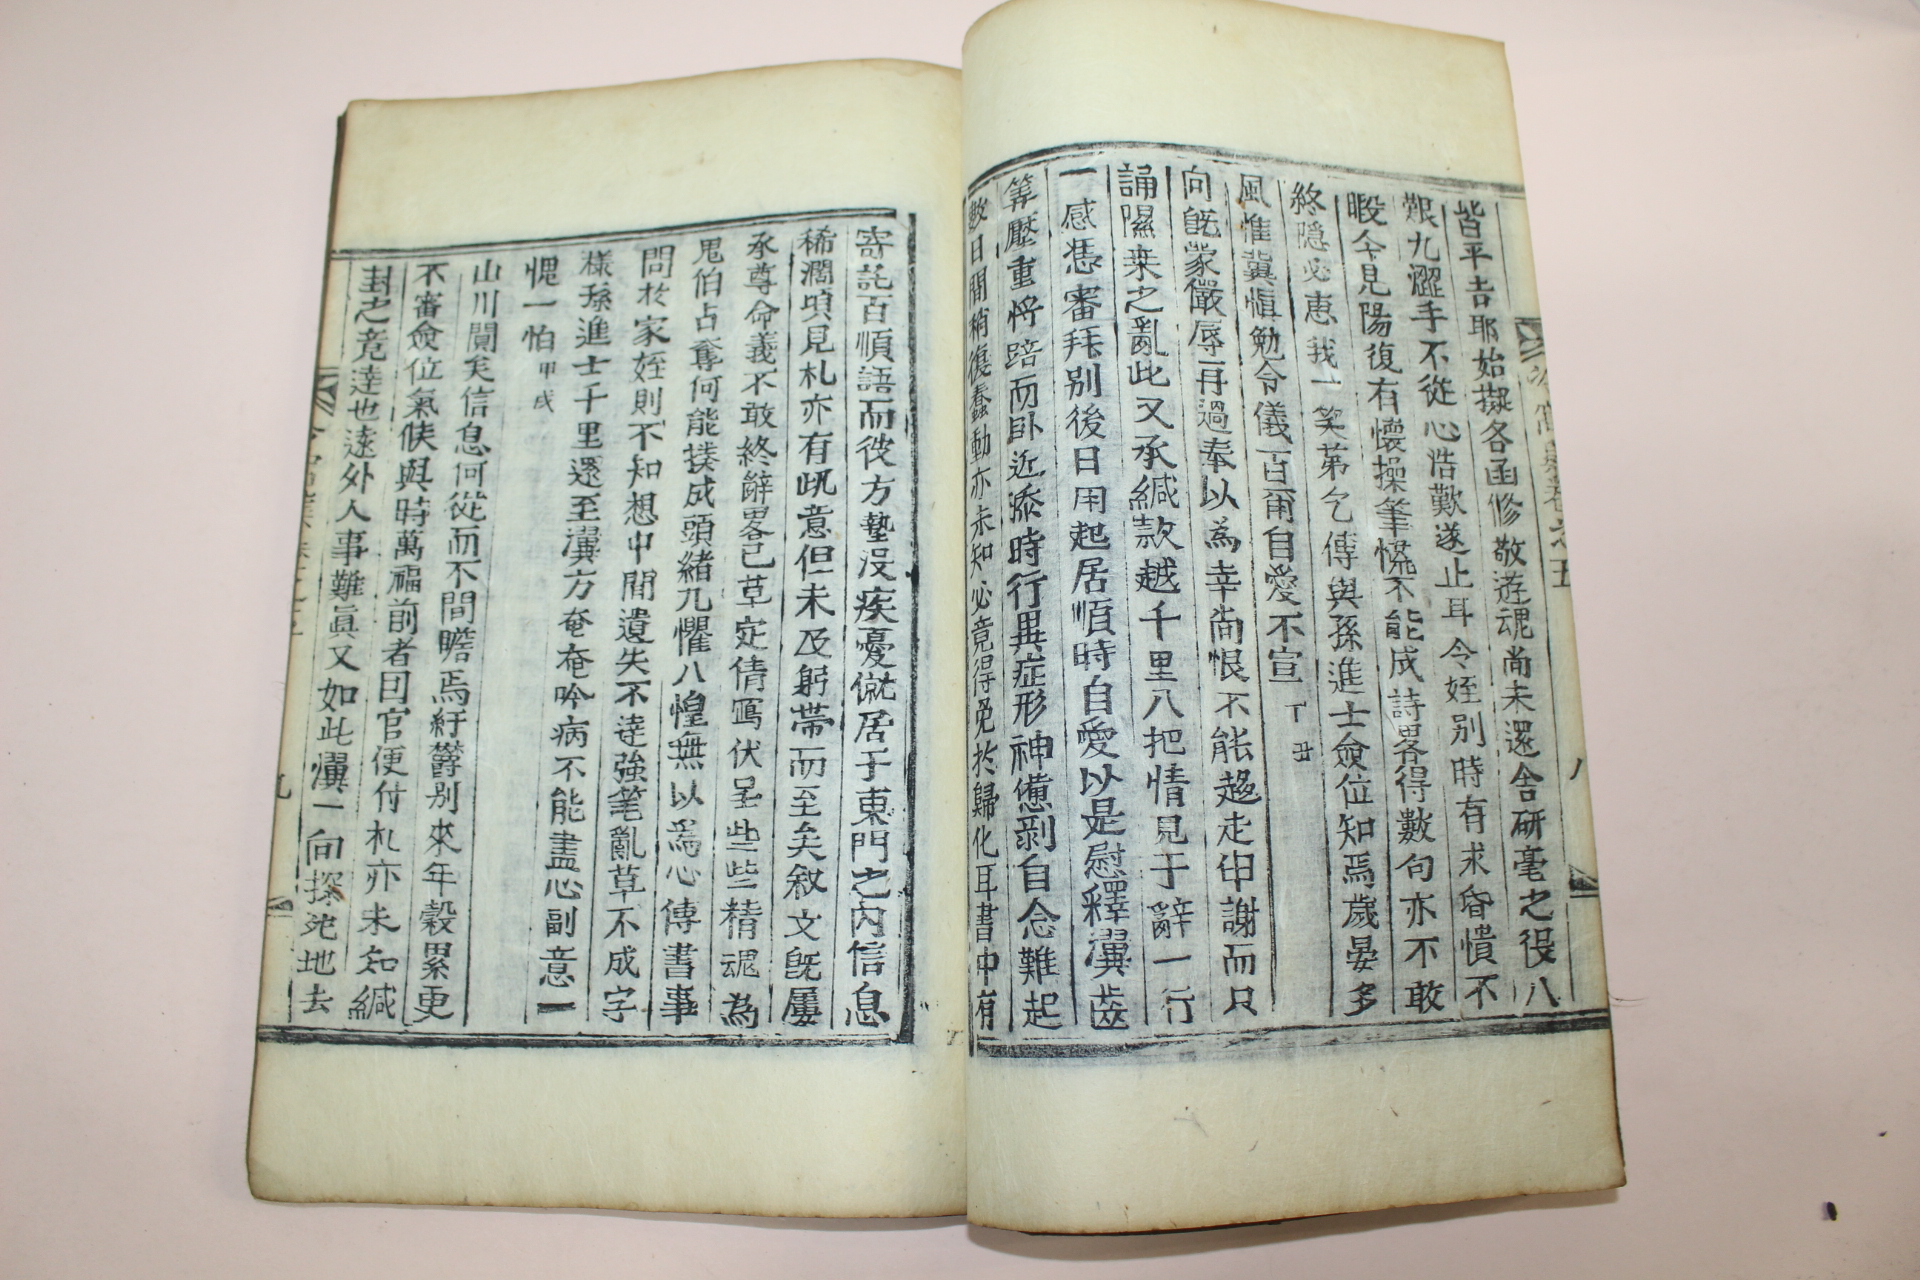 皆平吉耶始擬各函修敬遊魂尚未還舍研毫之役八
艱九澀手不從心浩歎遂止耳令姪別時有求昏憒不
暇今見陽復有懷操筆慌不能成詩畧得數句亦不敢
終隱必惠我一笑第乞傳與孫進士僉位知焉歲晏多
風惟冀愼勉令儀百甭自愛不宣 丁丑
向旣蒙儼辱再過奉以為幸尚恨不能趍走申謝而只
誦隰桒之亂此又承緘款越千里八把情見于辭一行
一感憑審拜別後日用起居順時自愛以是慰釋瀷齒
筭壓重將踣而卧近添時行異症形神憊剥自念難起
數日間稍復蠢動亦未知必竟得免於歸化耳書中有
寄託百順語而彼方墊没疾憂僦居于東門之內信息
稀濶頃見札亦有此意但未及躬帶而至矣敘文旣屢
承尊命義不敢終辭畧已草定倩寫伏呈些些精魂為
鬼伯占奪何能撲成頭緖九懼八惶無以為心傳書事
問於家姪則不知想中間遺失不逹強笔亂草不成字
樣孫進士千里還至瀷方奄奄吟病不能盡心副意一
愧一怕 甲戌
山川閴矣信息何從而不間瞻焉紆欝別來年穀累更
不審僉位氣候與時萬福前者因官便付札亦未知緘
封之竟逹也遠外人事難眞又如此瀷一向探死地去